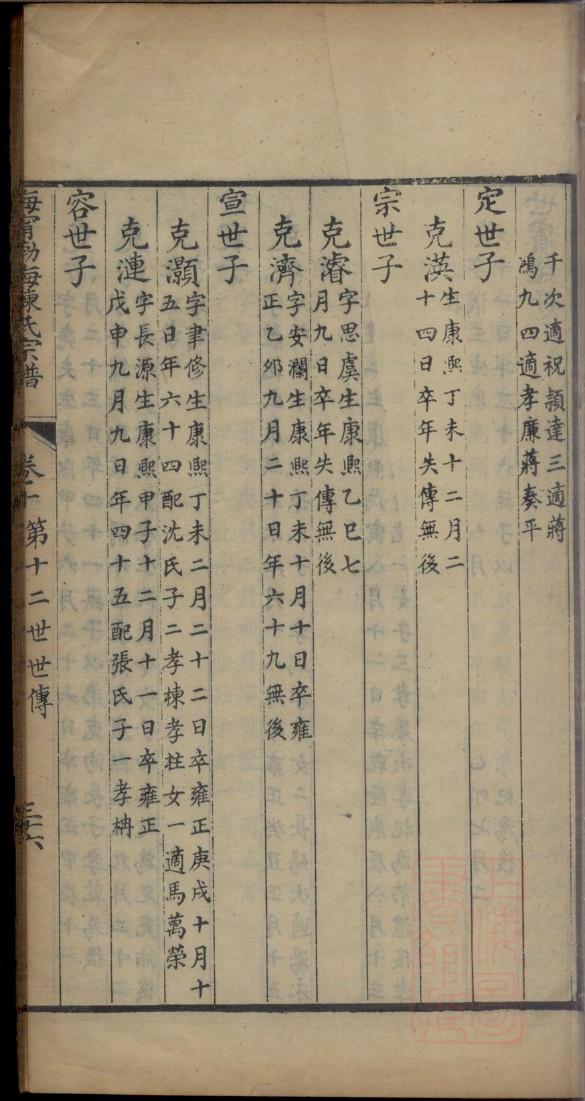 千次適祝頴達三適蔣
鴻九四適孝廉蔣奏平
定世子
克渶
生康熙丁未十二月二
十四日卒年失傳無後
宗世子
克濬
字思虞生康熙乙巳七
月九日卒年失傳無後
克濟
字安瀾生康熙丁未十月十日卒雍
正乙卯九月二十日年六十九無後
宣世子
克灝
字聿修生康熙丁未二月二十二日卒雍正庚戌十月十
五日年六十四配沈氏子二孝棟孝柱女一適馬萬榮
克漣
字長源生康熙甲子十二月十一日卒雍正
戊申九月九日年四十五配張氏子一孝柟
容世子
海寧渤海陳氏宗譜
卷十
第十二世世傳
三六